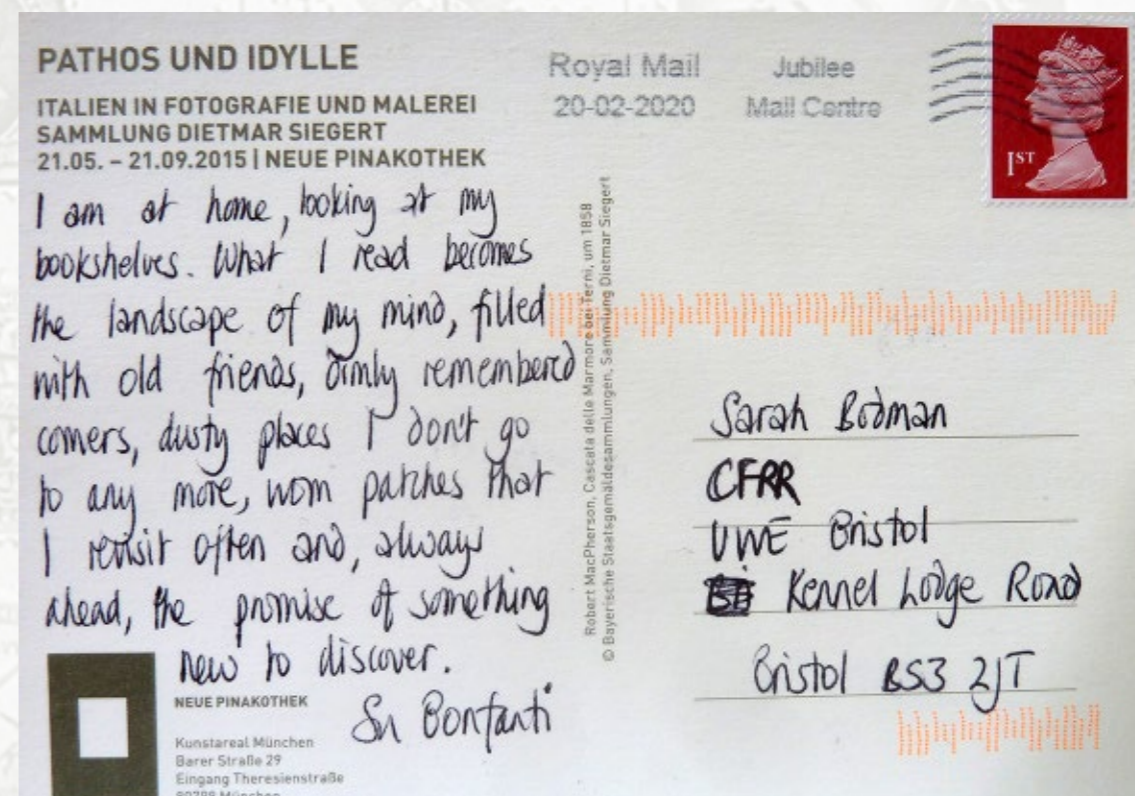 PATHOS UND IDYLLE
ITALIEN IN FOTOGRAFIE UND MALEREI
SAMMLUNG DIETMAR SIEGERT
21.05. – 21.09.2015 | NEUE PINAKOTHEK
I am at home, looking at my
bookshelves. What I read becomes
the landscape of my mind, filled
with old friends, dimly remembered
corners, dusty places I don't go
to any more, worn patches that
I revisit often and, always
ahead, the promise of something
new to discover.
Su Bonfanti
NEUE PINAKOTHEK
Kunstareal München
Barer Straße 29
Eingang Theresienstraße
80799 München
Robert MacPherson, Cascata delle Marmore bei Terni, um 1858
© Bayerische Staatsgemäldesammlungen, Sammlung Dietmar Siegert
Royal Mail Jubilee
20-02-2020 Mail Centre
1ST
Sarah Bodman
CFPR
UWE Bristol
Kennel Lodge Road
Bristol BS3 2JT